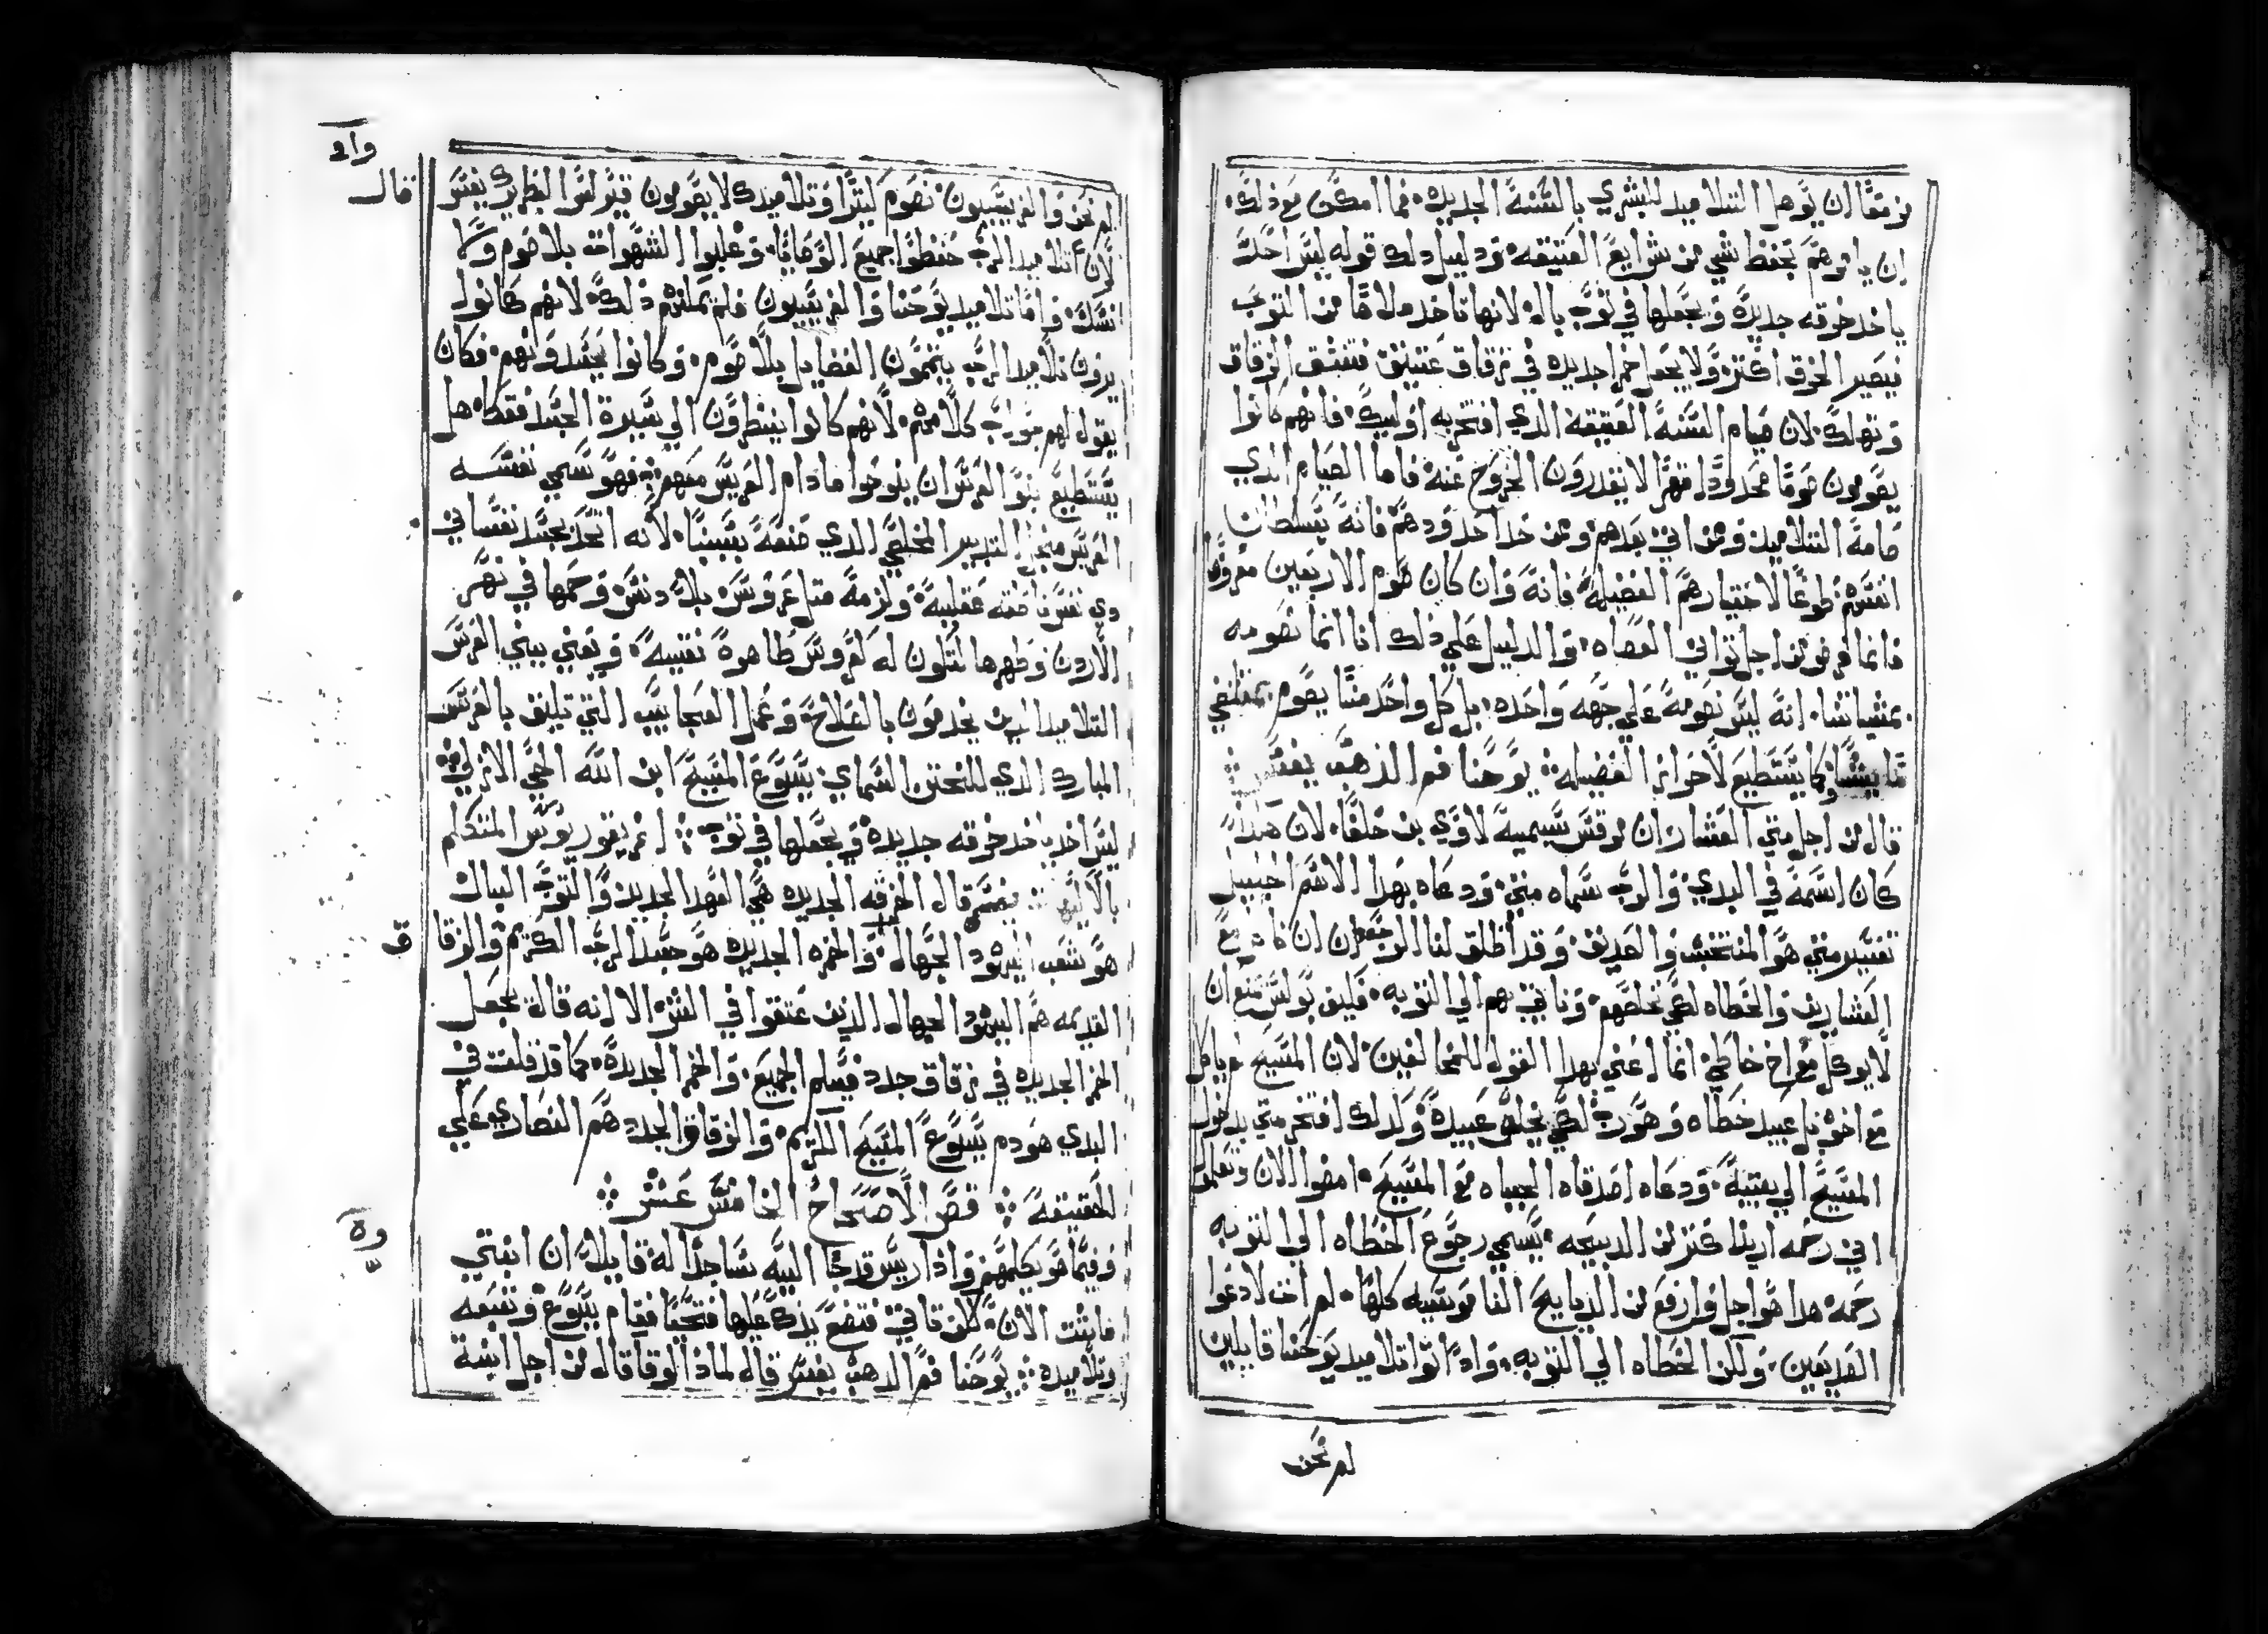 مزمعًا ان يوهل التلاميد للبشري بالسنة الجديده فما امكن مع ذلك
ان يامرهم بحفظ شي من شرايع العتيقه ودليل دلك قوله ليس احدًا
ياخد خرقه جديده ويجعلها في ثوب بال لانها تاخد ملاها من التوب
فيصير الخرق اكتر ولا يجعل خمرا جديده في زقاق عتيق فتنشق الزقاق
وتهلك لان صيام السنة العتيقة الدي افتخر به اوليك فانهم كانوا
يصومون صومًا محدودًا قهرًا لا يقدرون الخروج عنه فاما الصيام الدي
صامه التلاميد ومن اتي بعدهم ومن حدا حدودهم فانه بسلطان
انفسهم طوعًا لاختيارهم الفضيلة فانه وان كان صوم الاربعين مفروضًا
فانما فرض من اجل تواني العصاه والدليل علي ذلك اننا انما نصومه
بمشياتنا انه ليس نصومه علي جهه واحده بل كل واحد منا يصوم بمقتضي
وكما يستطيع لاحراز الفضيله يوحنا فم الذهب يفسر
قال من اجل متي العشار ان مرقس يسميه لاوي بن حلفا لان هذا
كان اسمه في البدي والرب سماه متي ودعاه بهدا الاسم الجليل
تفسير متي هو المنتخب والصديق وقد اطلق لنا الرب
العشارين والخطاه لكي يخلصهم وياتي بهم الي التوبه فليف بولس منع ان
لا يوكل مع اخ خاطي انما اعني بهدا القول للمخالفين لان المسيح لم ياكل
مع اخوه بل عبيد خطاه وهو رب لكي يخلص عبيده ولدلك افتخر متي بدخول
المسيح الي بيته ودعاه اصدقاه الجباه مع المسيح امضوا الان وتعلموا
اني رحمه اريد اكتر من الدبيحه يسمي رجوع الخطاه الي التوبه
رحمه هدا هو اجل وارفع من الدبايح الناموسيه كلها لم ات لادعوا
الصديقين ولكن الخطاه الي التوبه واد اتوا تلاميد يوحنا قايلين
لم نحن
واو
لم نحن والفريسيون نصوم كثيرًا وتلاميدك لا يصومون كيرلس البطريرك يفسر قال
لان تلاميد الرب حفظوا جميع الوصايا وغلبوا الشهوات بلا صوم ولا
نسك واما تلاميد يوحنا والفريسيون فلم يمكنهم ذلك لانهم كانوا
يرون تلاميد الرب يتممون الفضايل بلا صوم وكانوا يحسدونهم فكان
يقول لهم جواب كلامهم لانهم كانوا ينظرون الي سيرة الجسد فقط هل
يستطيع بنو العرس ان ينوحوا مادام العريس معهم فهو سمي نفسه
العريس من اجل التدبير المخلصي الدي صنعه بيننا لانه اتحد بجسد نفساني
دي نفس ناطقه عقلية ولزمه متل عروس بلا دنس وحمها في نهر
الاردن وطهرها لتكون له كعروس طاهرة نقية ويعني ببني العرس
التلاميد الدين يخدمون بالصلاح وعمل العجايب التي تليق بالعرس
المبارك الدي للختن السماي يسوع المسيح ابن الله الحي الازلي
ليس احد ياخد خرقه جديده ويجعلها في توب اغريغوريوس المتكلم
بالالهيات يفسر قال الخرقه الجديده هي العهد الجديد والتوب البال
هو شعب اليهود الجهال والخمره الجديده هو جسد الرب الكريم والزقاق
القديمه هم اليهود الجهال الذين عتقوا في الشر الا انه قال تجعل
الخمر الجديده في زقاق جدد فيسلم الجميع والخمر الجديدة كما قد قلت في
البدي هو دم يسوع المسيح الكريم والزقاق الجدد هم النصاري علي
الحقيقة فص الاصحاح الخامس عشر
وه
وفيما هو يكلمهم واذا ريس قد جا اليه ساجدًا له قايلا ان ابنتي
ماتت الان لكن تاتي فتضع يدك عليها فتحيا فقام يسوع وتبعه
وتلاميده يوحنا فم الدهب يفسر قال لماذا لوقا قال من اجل ابنة